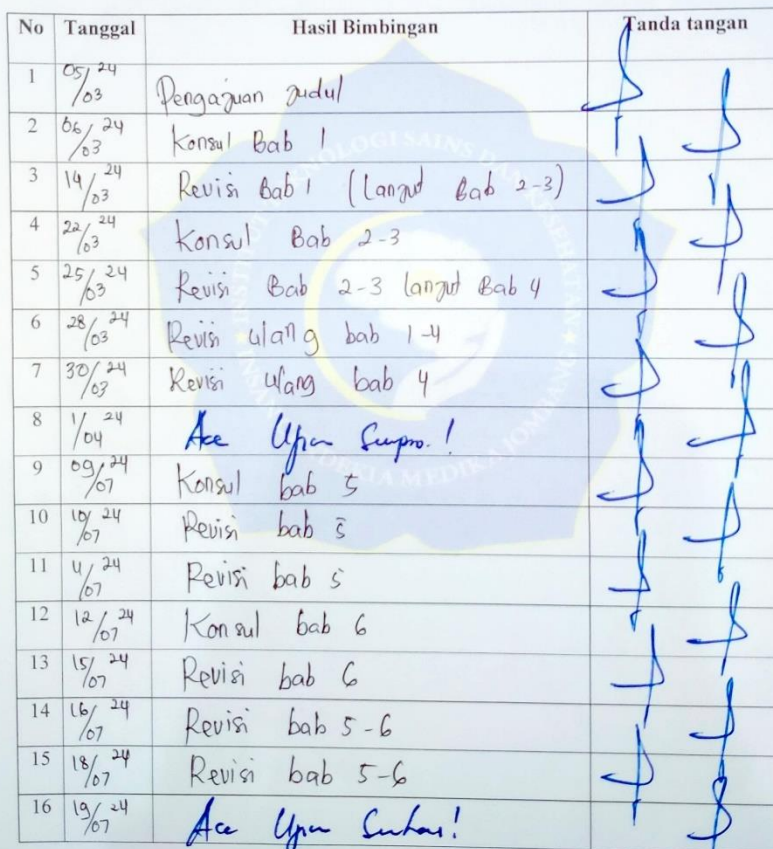 No Tanggal Hasil Bimbingan Tanda tangan
1 05/03 24 Pengajuan judul
2 06/03 24 Konsul Bab 1
3 14/03 24 Revisi Bab 1 (Lanjut Bab 2-3)
4 22/03 24 Konsul Bab 2-3
5 25/03 24 Revisi Bab 2-3 lanjut Bab 4
6 28/03 24 Revisi ulang bab 1-4
7 30/03 24 Revisi ulang bab 4
8 1/04 24 Acc Ujian Sempro.!
9 09/07 24 Konsul bab 5
10 10/07 24 Revisi bab 5
11 11/07 24 Revisi bab 5
12 12/07 24 Konsul bab 6
13 15/07 24 Revisi bab 6
14 16/07 24 Revisi bab 5-6
15 18/07 24 Revisi bab 5-6
16 19/07 24 Acc Ujian Semhas!
INSTITUT TEKNOLOGI SAINS DAN KESEHATAN
INSAN CENDEKIA MEDIKA JOMBANG